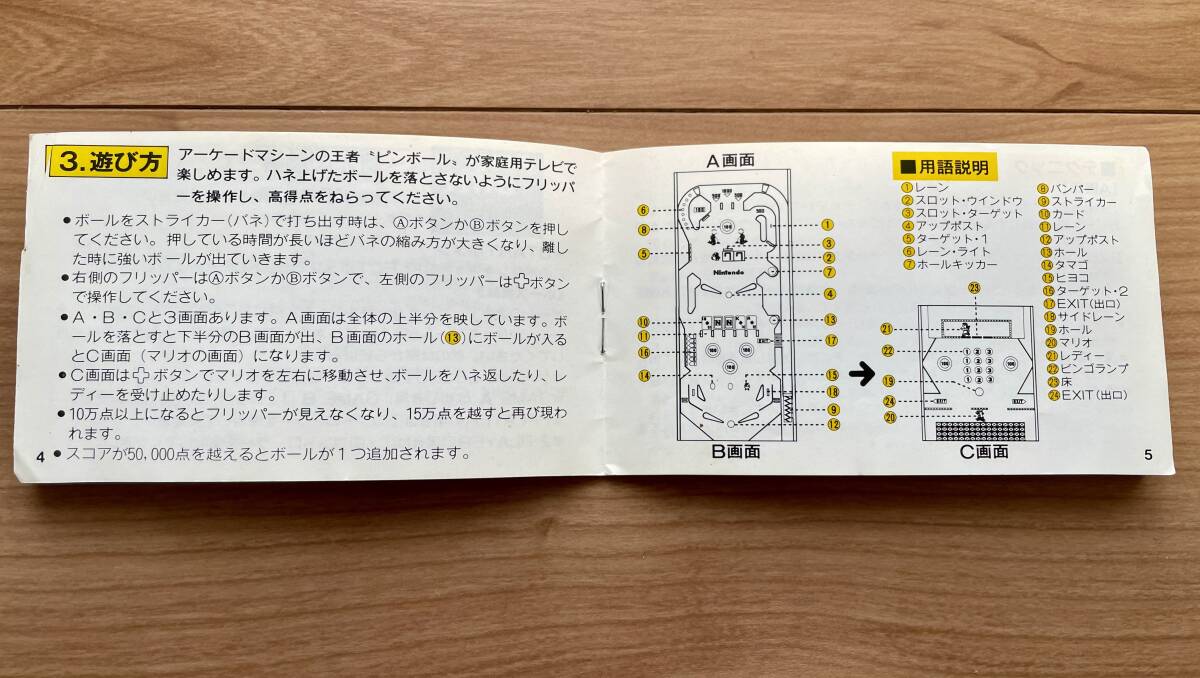 3.遊び方
アーケードマシーンの王者〝ピンボール〟が家庭用テレビで
楽しめます。ハネ上げたボールを落とさないようにフリッパ
ーを操作し、高得点をねらってください。
●ボールをストライカー(バネ)で打ち出す時は、ⒶボタンかⒷボタンを押し
てください。押している時間が長いほどバネの縮み方が大きくなり、離し
た時に強いボールが出ていきます。
●右側のフリッパーはⒶボタンかⒷボタンで、左側のフリッパーは✚ボタン
で操作してください。
●A・B・Cと3画面あります。A画面は全体の上半分を映しています。ボ
ールを落とすと下半分のB画面が出、B画面のホール(⑬)にボールが入る
とC画面(マリオの画面)になります。
●C画面は✚ボタンでマリオを左右に移動させ、ボールをハネ返したり、レ
ディーを受け止めたりします。
●10万点以上になるとフリッパーが見えなくなり、15万点を越すと再び現わ
れます。
●スコアが50,000点を越えるとボールが1つ追加されます。
4
A画面
Nintendo
⑥
⑧
⑤
⑩
⑪
⑯
⑭
①
③
②
⑦
④
⑬
⑰
⑮
⑱
⑨
⑫
B画面
■用語説明
①レーン
②スロット・ウインドウ
③スロット・ターゲット
④アップポスト
⑤ターゲット・1
⑥レーン・ライト
⑦ホールキッカー
⑧バンパー
⑨ストライカー
⑩カード
⑪レーン
⑫アップポスト
⑬ホール
⑭タマゴ
⑮ヒヨコ
⑯ターゲット・2
⑰EXIT(出口)
⑱サイドレーン
⑲ホール
⑳マリオ
㉑レディー
㉒ビンゴランプ
㉓床
㉔EXIT(出口)
㉓
㉑
㉒
⑲
㉔
⑳
C画面
5